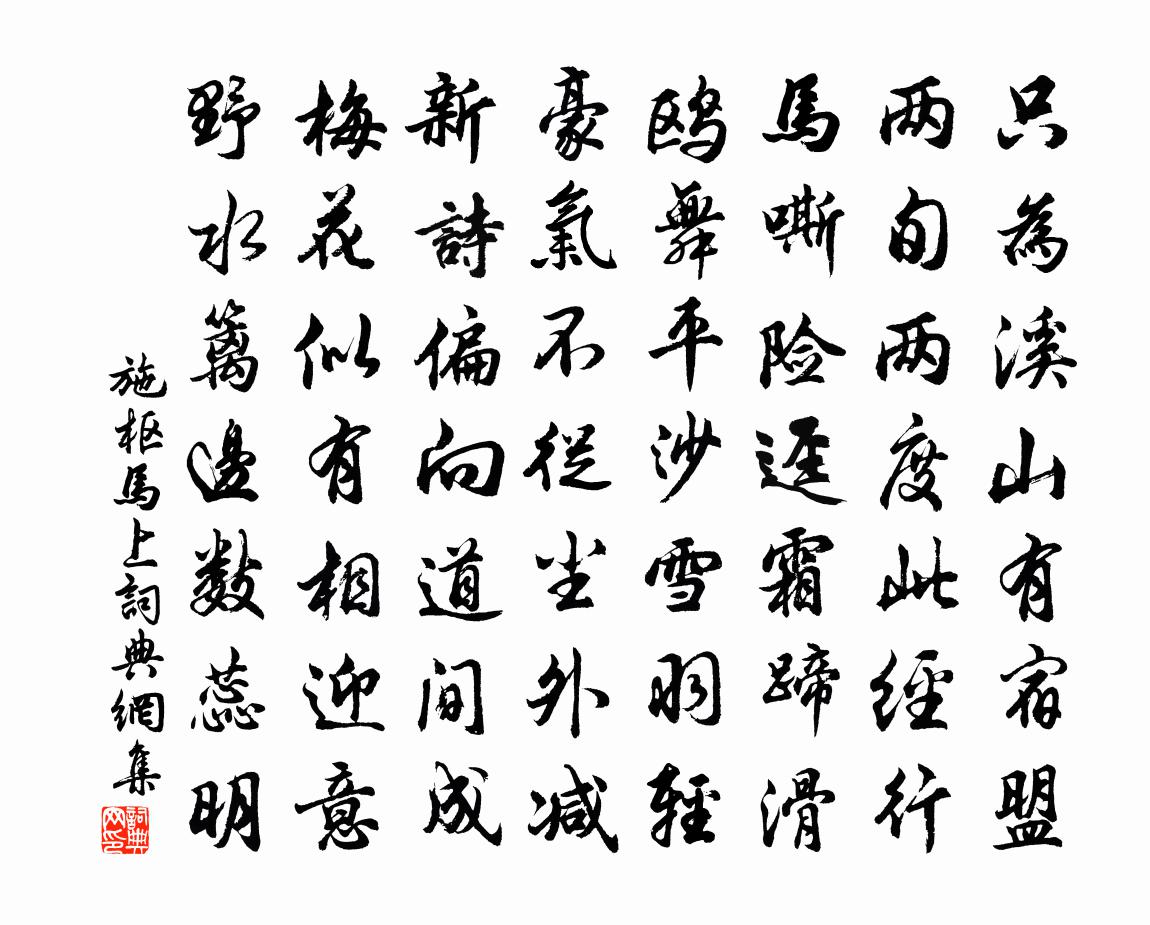 只為溪山有宿盟
两旬两度此經行
馬嘶险逕霜蹄滑
鸥舞平沙雪羽輕
豪氣不從尘外减
新詩偏向道间成
梅花似有相迎意
野水篱邊数蕊明
施枢馬上詞典網集
詞典网印